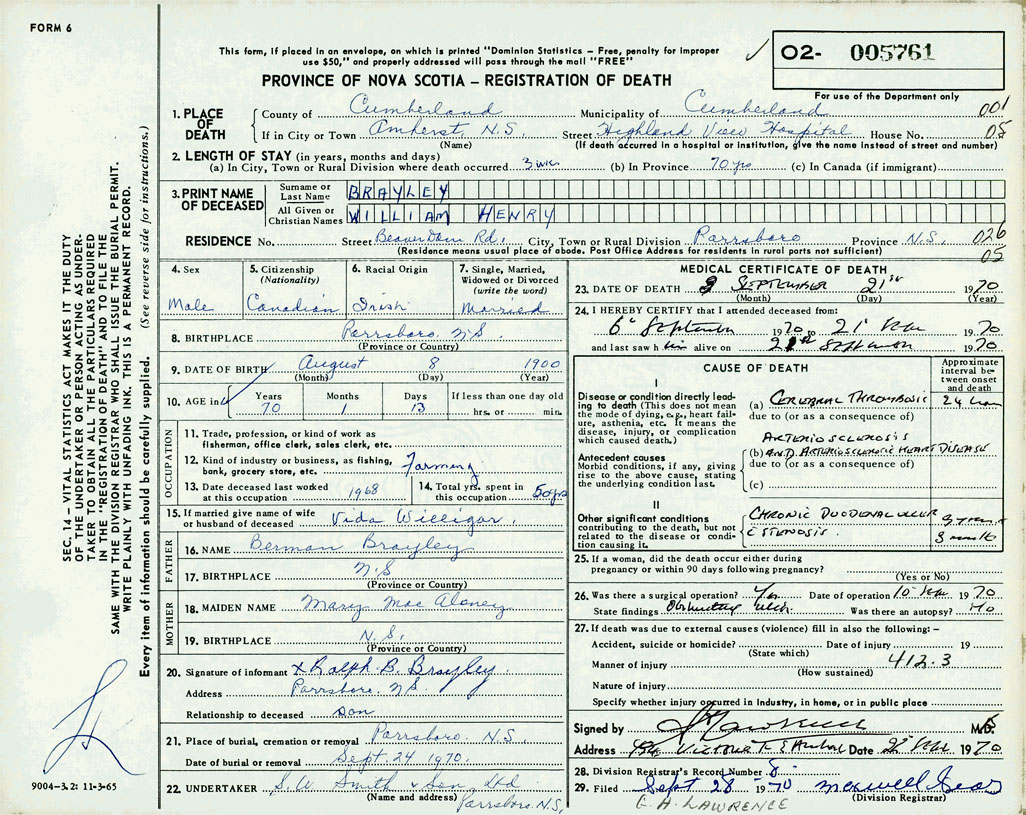 FORM 6
This form, if placed in an envelope, on which is printed "Dominion Statistics – Free, penalty for improper
use $50," and properly addressed will pass through the mail "FREE"
PROVINCE OF NOVA SCOTIA – REGISTRATION OF DEATH
O2- 005761
For use of the Department only
SEC. 14 – VITAL STATISTICS ACT MAKES IT THE DUTY
OF THE UNDERTAKER OR PERSON ACTING AS UNDER-
TAKER TO OBTAIN ALL THE PARTICULARS REQUIRED
IN THE "REGISTRATION OF DEATH" AND TO FILE THE
SAME WITH THE DIVISION REGISTRAR WHO SHALL ISSUE THE BURIAL PERMIT.
WRITE PLAINLY WITH UNFADING INK. THIS IS A PERMANENT RECORD.
Every item of information should be carefully supplied. (See reverse side for instructions.)
1. PLACE OF DEATH
County of Cumberland Municipality of Cumberland 001
If in City or Town Amherst, N.S. Street Highland View Hospital House No. 05
(Name) (If death occurred in a hospital or institution, give the name instead of street and number)
2. LENGTH OF STAY (in years, months and days)
(a) In City, Town or Rural Division where death occurred 3 wks (b) In Province 70 yrs (c) In Canada (if immigrant)
3. PRINT NAME OF DECEASED
Surname or Last Name BRAYLEY
All Given or Christian Names WILLIAM HENRY
RESIDENCE No. Street Beaver Dam Rd. City, Town or Rural Division Parrsboro Province N.S. 026
(Residence means usual place of abode. Post Office Address for residents in rural parts not sufficient) 05
4. Sex Male
5. Citizenship (Nationality) Canadian
6. Racial Origin Irish
7. Single, Married, Widowed or Divorced (write the word) Married
8. BIRTHPLACE Parrsboro. N.S
(Province or Country)
9. DATE OF BIRTH August 8 1900
(Month) (Day) (Year)
10. AGE in Years 70 Months 1 Days 13 If less than one day old
hrs. or min.
OCCUPATION
11. Trade, profession, or kind of work as
fisherman, office clerk, sales clerk, etc.
12. Kind of industry or business, as fishing,
bank, grocery store, etc. Farming
13. Date deceased last worked
at this occupation 1968
14. Total yrs. spent in
this occupation 50 yrs
15. If married give name of wife
or husband of deceased Vida Willigar.
FATHER
16. NAME Berman Brayley
17. BIRTHPLACE N.S
(Province or Country)
MOTHER
18. MAIDEN NAME Mary Mac Aloney
19. BIRTHPLACE N.S.
(Province or Country)
20. Signature of informant x Ralph B. Brayley
Address Parrsboro. N.S
Relationship to deceased son
21. Place of burial, cremation or removal Parrsboro. N.S
Date of burial or removal Sept. 24 1970.
22. UNDERTAKER S.W. Smith & Son Ltd
(Name and address) Parrsboro N.S.
9004-3.2: 11-3-65
MEDICAL CERTIFICATE OF DEATH
23. DATE OF DEATH SEPTEMBER 21st 1970
(Month) (Day) (Year)
24. I HEREBY CERTIFY that I attended deceased from:
6th September 1970 to 21st 1970
and last saw h im alive on September 1970
CAUSE OF DEATH
Approximate interval between onset and death
I
Disease or condition directly lead-
ing to death (This does not mean
the mode of dying, e.g., heart fail-
ure, asthenia, etc. It means the
disease, injury, or complication
which caused death.)
(a) CEREBRAL THROMBOSIS 24 hours
due to (or as a consequence of)
ARTERIOSCLEROSIS
Antecedent causes
Morbid conditions, if any, giving
rise to the above cause, stating
the underlying condition last.
(b) AND ARTERIOSCLEROTIC HEART DISEASE
due to (or as a consequence of)
(c)
II
Other significant conditions
contributing to the death, but not
related to the disease or condi-
tion causing it.
CHRONIC DUODENAL ULCER
STENOSIS.
25. If a woman, did the death occur either during
pregnancy or within 90 days following pregnancy?
(Yes or No)
26. Was there a surgical operation? Yes Date of operation 1970
State findings Was there an autopsy? NO
27. If death was due to external causes (violence) fill in also the following: –
Accident, suicide or homicide? Date of injury 19
(State which)
Manner of injury 412.3
(How sustained)
Nature of injury
Specify whether injury occurred in industry, in home, or in public place
Signed by M.D.
Address Victoria St E Amherst Date 1970
28. Division Registrar's Record Number 8
29. Filed Sept 28 1970
(Division Registrar)
G. A. LAWRENCE